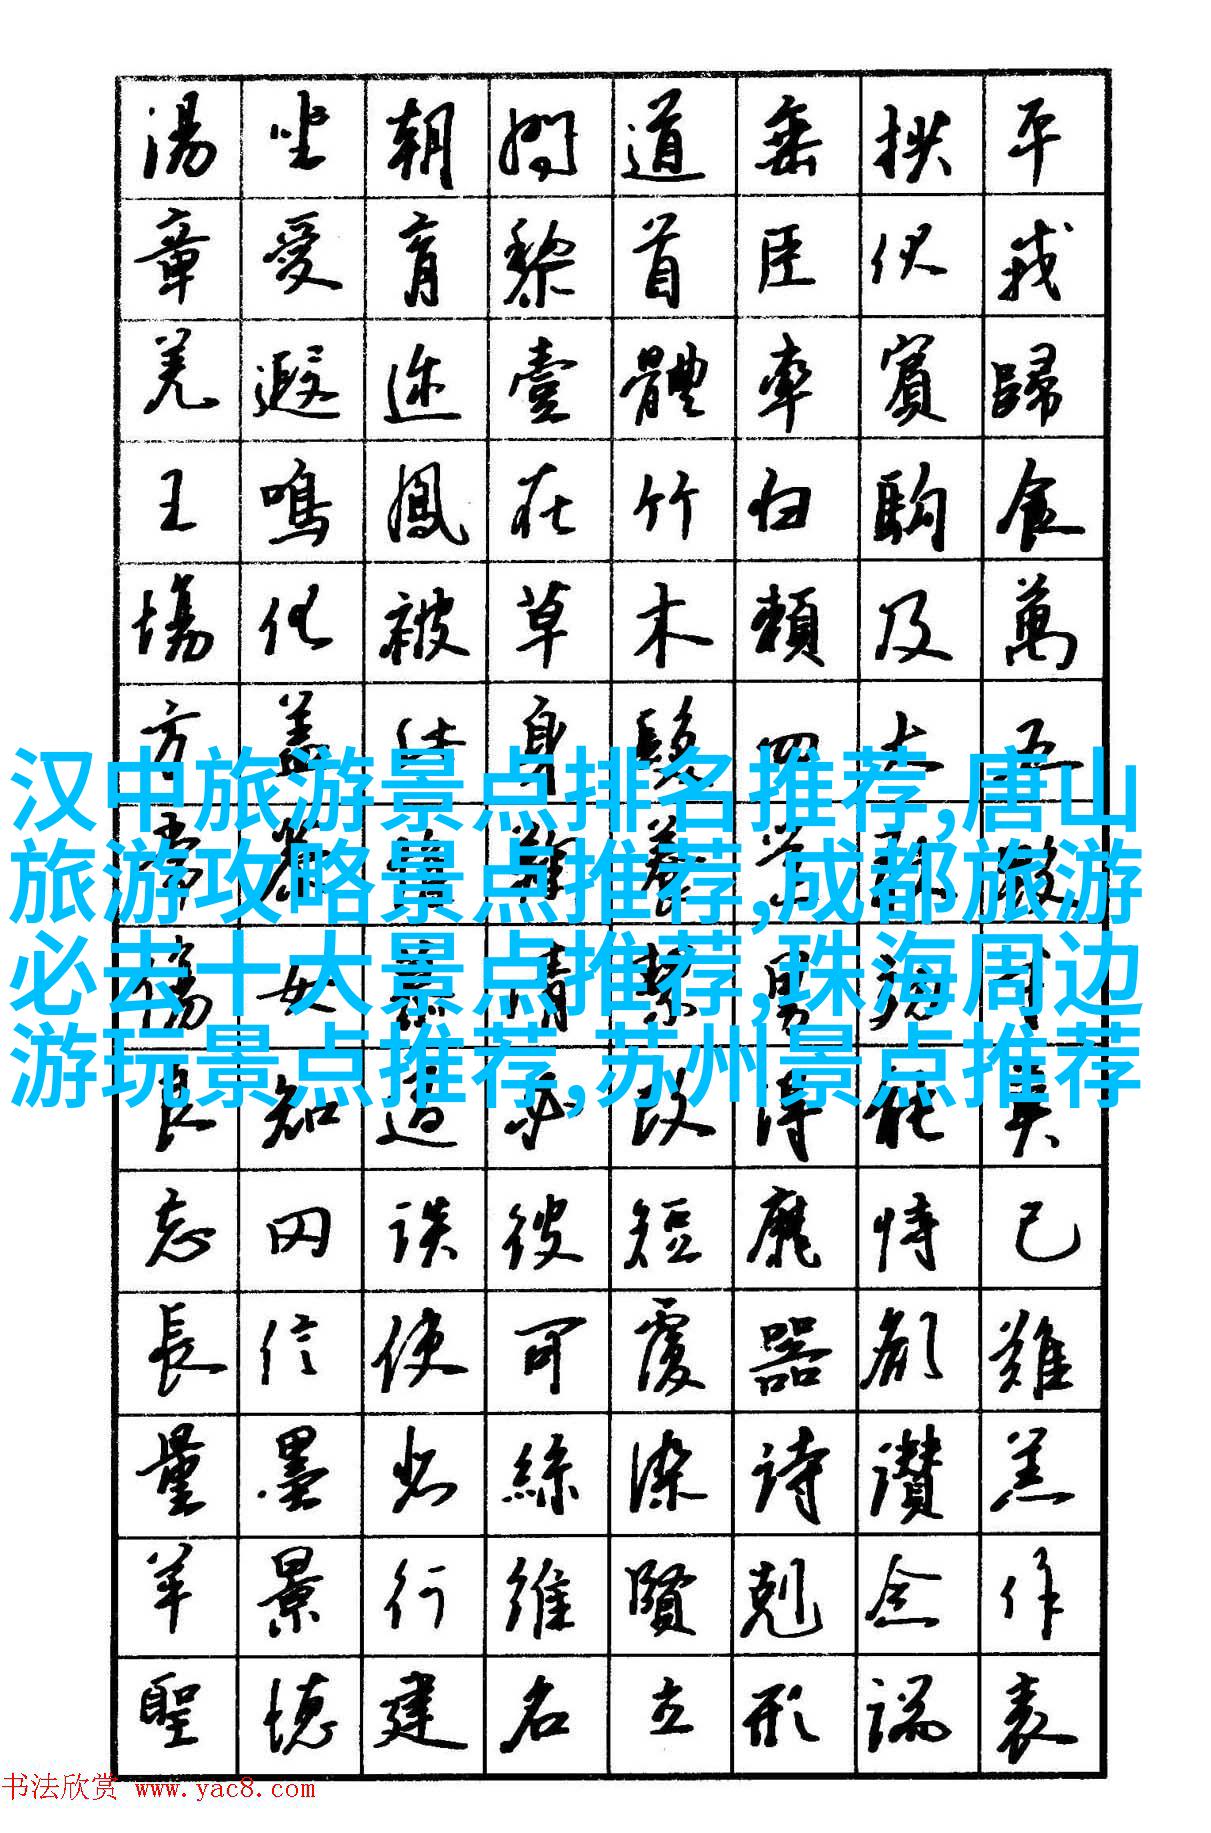 湯坐朝問道垂拱平
章愛育黎首臣伏戎
羌遐迩壹體率賓歸
王鳴鳳在竹白駒食
場化被草木賴及萬
方盖此身髮四大五
汉中旅游景点排名推荐,唐山
旅游攻略景点推荐,成都旅游
必去十大景点推荐,珠海周边
游玩景点推荐,苏州景点推荐
傷女慕潔男
良知過必改得能莫
忘罔談彼短靡恃己
長信使可覆器欲難
量墨悲絲染詩讚羔
羊景行維賢剋念作
聖德建名立形端表
书法欣赏 www.yac8.com